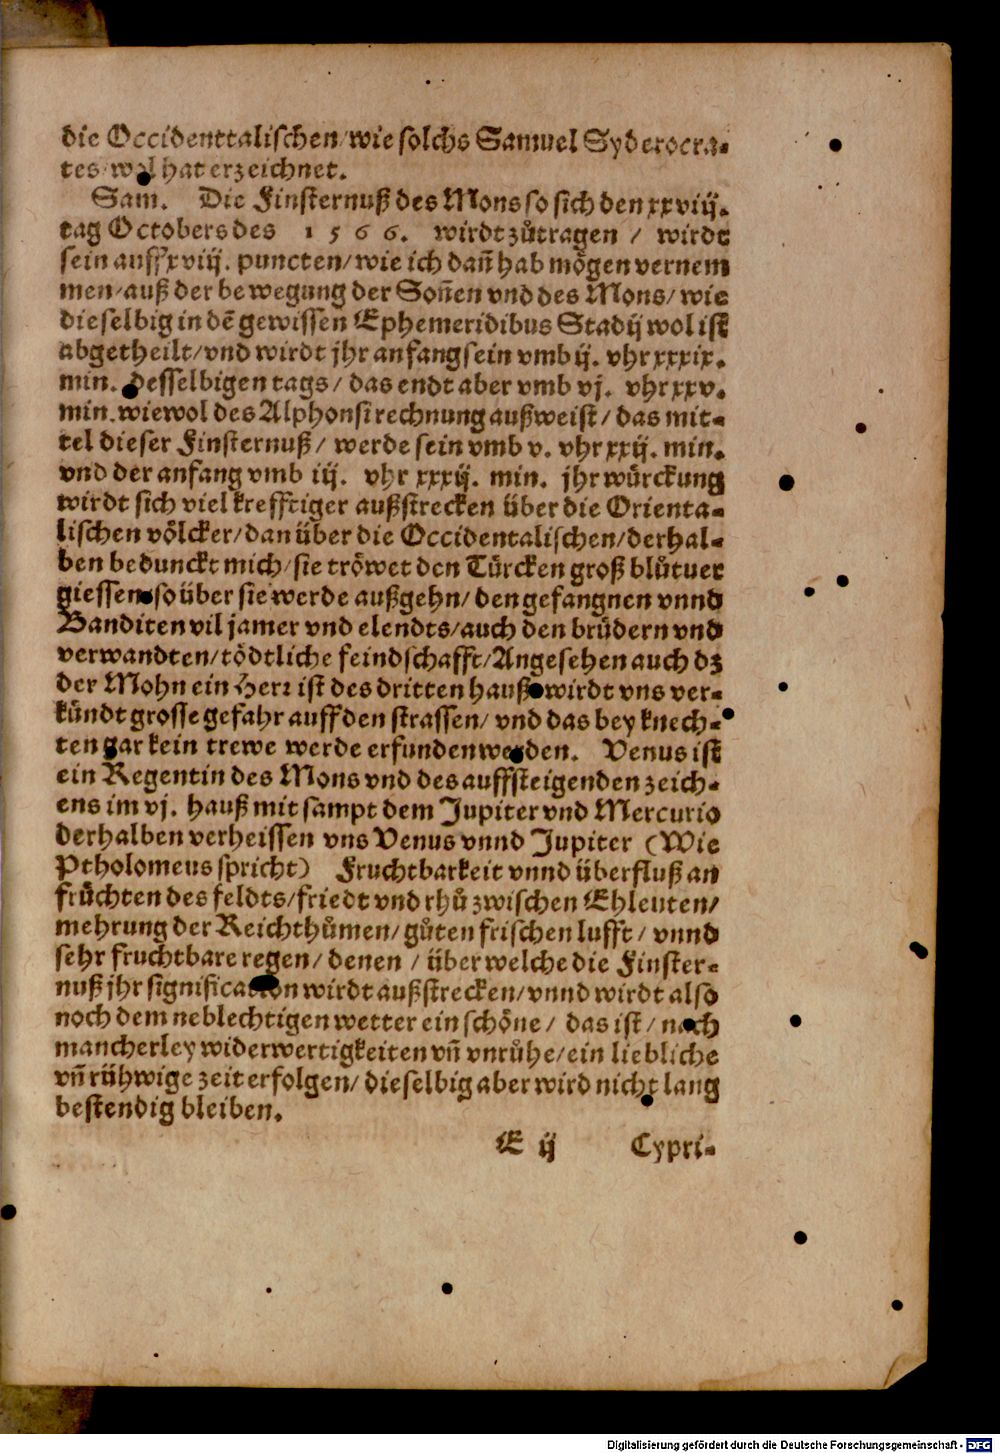 die Occidenttalischen/wie solchs Samuel Syderocra-
tes wol hat erzeichnet.
Sam. Die Finsternuß des Mons so sich den xxviij.
tag Octobers des 1566. wirdt zůtragen / wirdt
sein auff xviij. puncten/wie ich dañ hab mögen vernem
men/auß der bewegung der Soñen vnd des Mons/wie
dieselbig in dẽ gewissen Ephemeridibus Stadij wol ist
abgetheilt/vnd wirdt jhr anfang sein vmb ij. vhr xxxix.
min. desselbigen tags/das endt aber vmb vj. vhr xxv.
min. wiewol des Alphonsi rechnung außweist/das mit-
tel dieser Finsternuß/ werde sein vmb v. vhr xxij. min.
vnd der anfang vmb iij. vhr xxxij. min. jhr würckung
wirdt sich viel krefftiger außstrecken über die Orienta-
lischen völcker/dan über die Occidentalischen/derhal-
ben bedunckt mich/sie tröwet den Türcken groß blůtuer
giessen so über sie werde außgehn/den gefangnen vnnd
Banditen vil jamer vnd elendts/auch den brüdern vnd
verwandten/tödtliche feindschafft/Angesehen auch dz
der Mohn ein Herr ist des dritten hauß wirdt vns ver-
kündt grosse gefahr auff den strassen/ vnd das bey knech-
ten gar kein trewe werde erfunden werden. Venus ist
ein Regentin des Mons vnd des auffsteigenden zeich-
ens im vj. hauß mit sampt dem Jupiter vnd Mercurio
derhalben verheissen vns Venus vnnd Jupiter (Wie
Ptholomeus spricht) Fruchtbarkeit vnnd überfluß an
früchten des feldts/friedt vnd rhů zwischen Ehleuten/
mehrung der Reichthůmen/gůten frischen lufft/ vnnd
sehr fruchtbare regen/ denen / über welche die Finster-
nuß jhr signification wirdt außstrecken/vnnd wirdt also
noch dem neblechtigen wetter ein schöne/ das ist/ noch
mancherley widerwertigkeiten vñ vnrůhe/ein liebliche
vñ rühwige zeit erfolgen/dieselbig aber wird nicht lang
bestendig bleiben.
E ij Cypri-
Digitalisierung gefördert durch die Deutsche Forschungsgemeinschaft - DFG